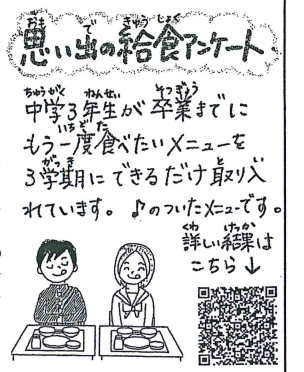 思い出の給食アンケート♪
中学3年生が卒業までに
もう一度食べたいメニューを
3学期にできるだけ取り入
れています。♪のついたメニューです。
詳しい結果は
こちら↓